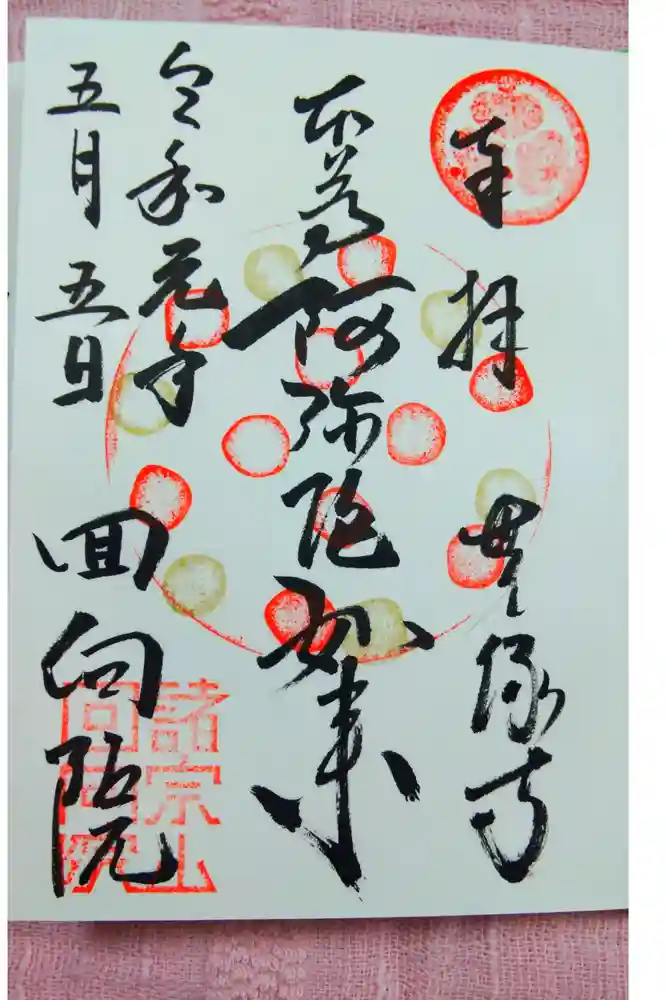 奉拝 無縁寺
本尊阿弥陀如来
令和元年
五月五日
回向院
諸宗山
回向院